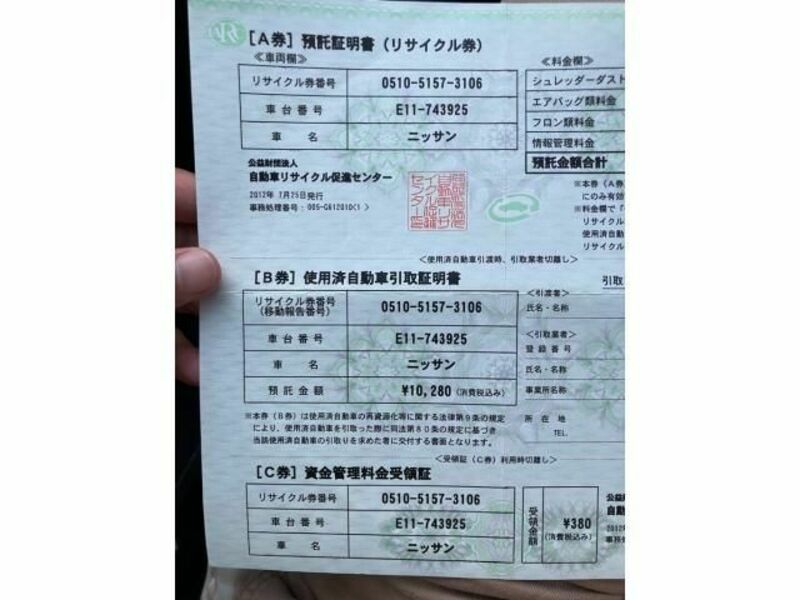 [A券] 預託証明書 (リサイクル券)
≪車両欄≫
リサイクル券番号 0510-5157-3106
車台番号 E11-743925
車名 ニッサン
≪料金欄≫
シュレッダーダスト
エアバッグ類料金
フロン類料金
情報管理料金
預託金額合計
公益財団法人
自動車リサイクル促進センター
2012年 7月25日発行
事務処理番号:005-G612010(1 )
※本券 (A券
にのみ有効
※料金欄で「
リサイクル
使用済自動
リサイクル
<使用済自動車引渡時、引取業者切離し>
[B券] 使用済自動車引取証明書
リサイクル券番号
(移動報告番号)
0510-5157-3106
車台番号 E11-743925
車名 ニッサン
預託金額 ¥10,280 (消費税込み)
引取
<引渡者>
氏名・名称
<引取業者>
登録番号
氏名・名称
事業所名称
所在地
TEL.
※本券 (B券) は使用済自動車の再資源化等に関する法律第9条の規定
により、使用済自動車を引取った際に同法第80条の規定に基づき
当該使用済自動車の引取りを求めた者に交付する書面となります。
<受領証 (C券) 利用時切離し>
[C券] 資金管理料金受領証
リサイクル券番号 0510-5157-3106
車台番号 E11-743925
車名 ニッサン
受領金額
¥380
(消費税込み)
公益
自動
2012
事務